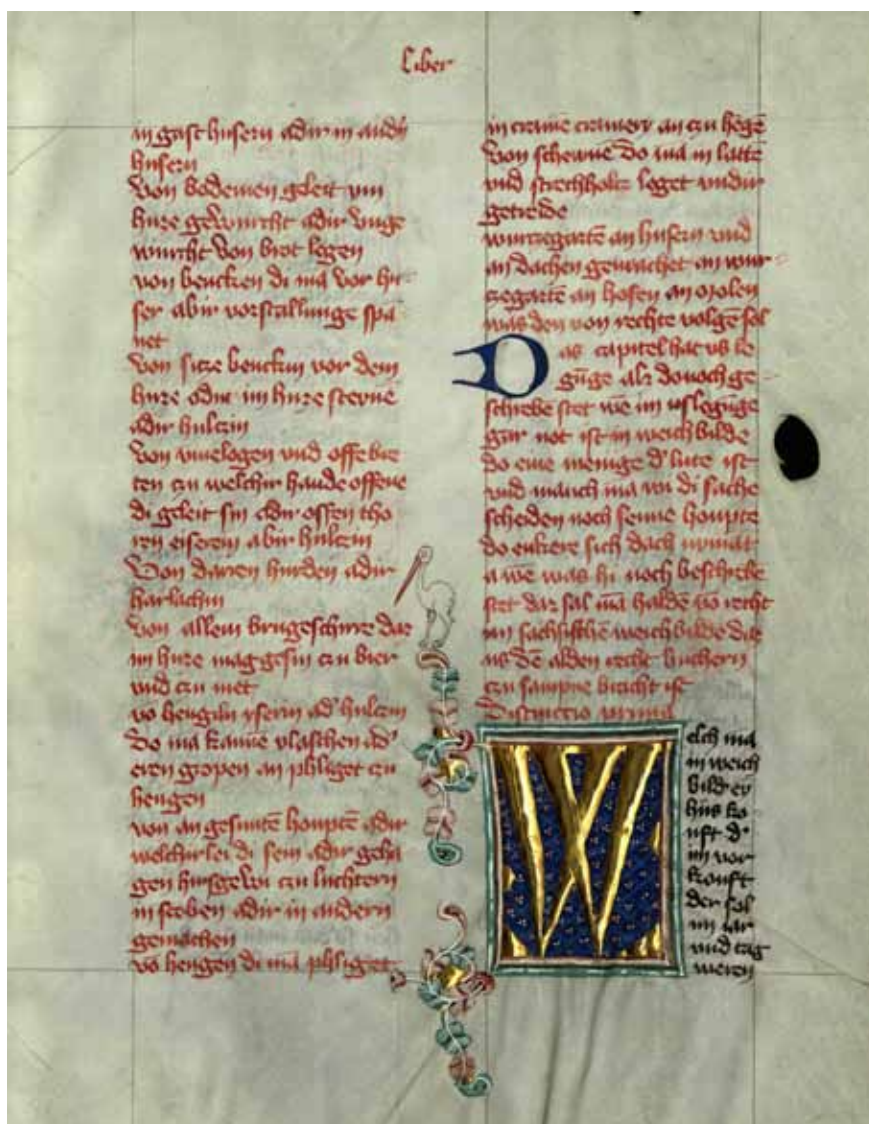 Liber
in gast husern adir in andn̄
husern
Von bodemen geleit vm
huze gewurcht adir vnge
wurcht von bret legen
von bencken di mā vor hu
ser abir vorstallunge spā
net
Von sitze benckin vor dem
huze adir im huze steynē
adir hulczin
Von vnd offē
ten czu welchir hande offene
di geleit sin adir offen tho
ren eiseren abir hulczin
Von darren hurden adir
harlachin
Von allem brugeschirre daz
im huze mag gesin czu bier
vnd czu met
vō hengiln yserin ad' hulczin
do mā kannē vlaschen ad'
eren gropen an phliget czu
hengen
von an gesmitē houptē adir
welchirlei di sein adir geha
gen hirsgewi czu luchtern
in stoben adir in andern
gemachen
vō hengen di mā phliget
in cramē cramery an czu hēgē
Von do mā in lattē
vnd streckholcz leget vndir
getreide
wurczegartē an husern vnd
an dachen gemachet an wur
czegartē an hofen an
was den von rechte volgē sol
Das capitel hat vs le
gūge alz donoch ge
schrebē stet wē im uslegūge
gar not ist in weichbilde
do eine menige d' lute ist
vnd manch mā wi di sache
scheiden noch seine houpte
do enkere sich dach nymāt
a wē was hi noch beschrebē
stet daz sal mā haldē vō recht
im sachsischē weichbilde daz
us dē alden recht buchern
czu sampne bracht ist
Distinctio prima
Welch mā
in weich
bilde ey
hus ko
uft d'
im vor
kouft
der sal
im iar
vnd tag
weren